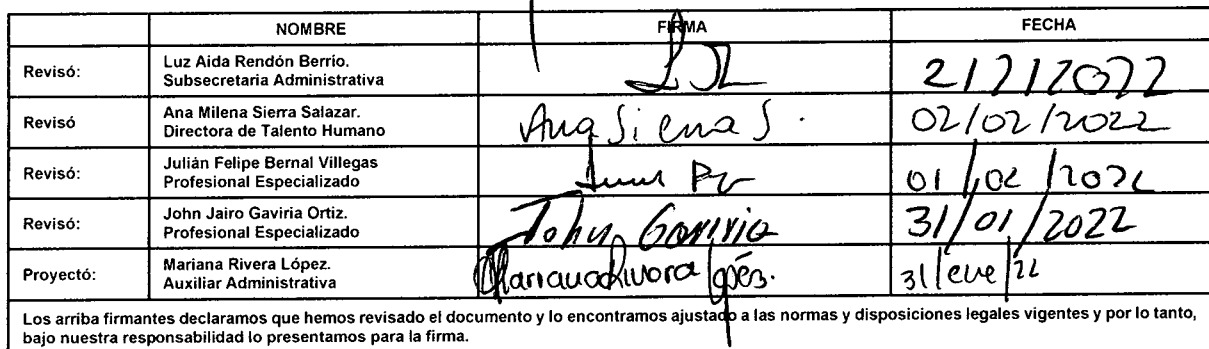 NOMBRE FIRMA FECHA
Revisó: Luz Aida Rendón Berrío.
Subsecretaria Administrativa 2/2/2022
Revisó Ana Milena Sierra Salazar.
Directora de Talento Humano Ana Sierra S. 02/02/2022
Revisó: Julián Felipe Bernal Villegas
Profesional Especializado 01/02/2022
Revisó: John Jairo Gaviria Ortiz.
Profesional Especializado John Gaviria 31/01/2022
Proyectó: Mariana Rivera López.
Auxiliar Administrativa Mariana Rivera López. 31/ene/22
Los arriba firmantes declaramos que hemos revisado el documento y lo encontramos ajustado a las normas y disposiciones legales vigentes y por lo tanto,
bajo nuestra responsabilidad lo presentamos para la firma.